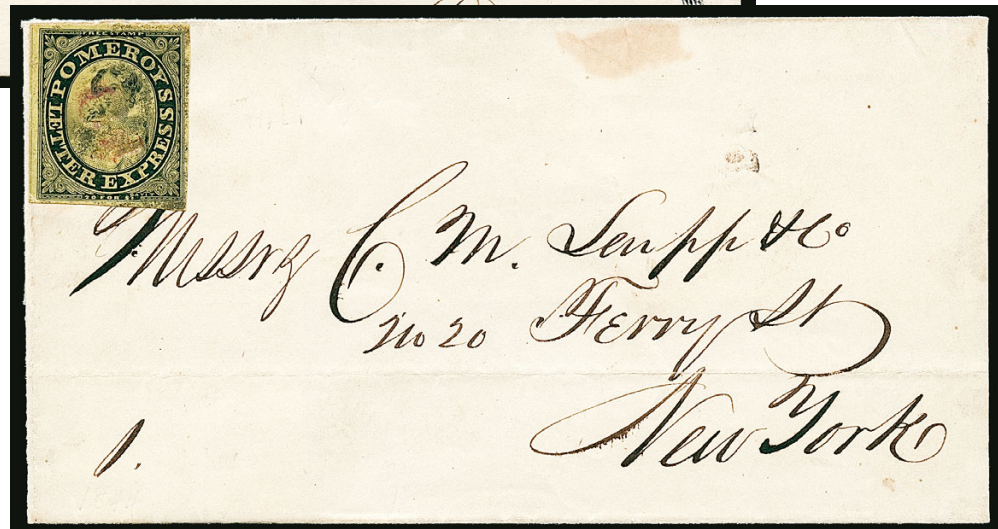 FREE STAMP
POMEROY'S
LETTER EXPRESS
20 FOR $1
Messrs C. M. Leupp & Co
No 20 Ferry St
New York
1.